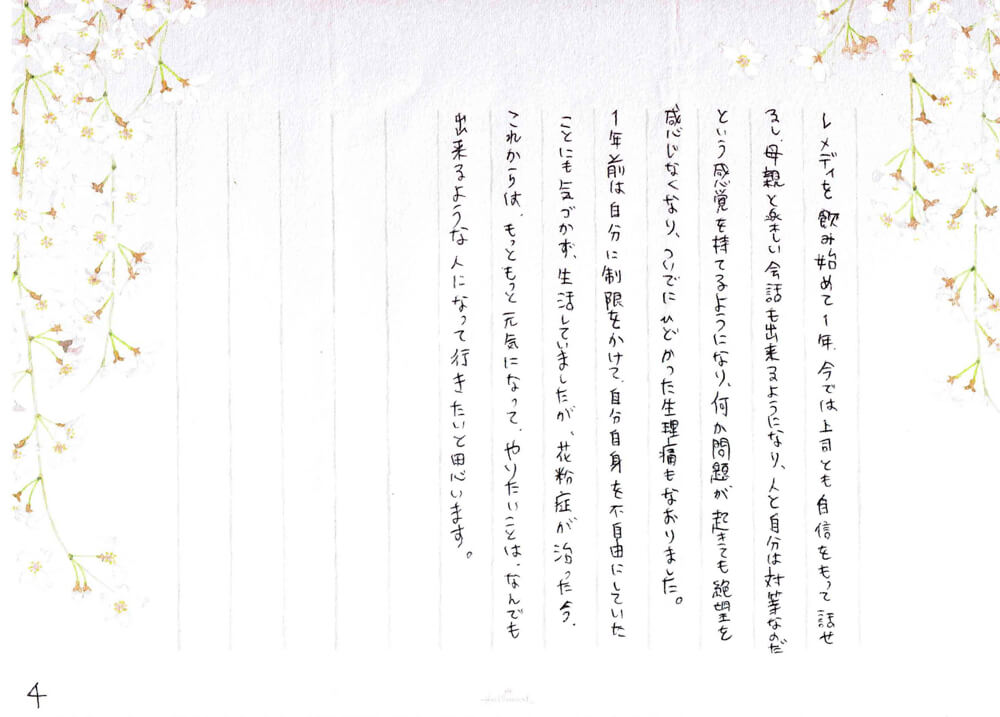 レメディを飲み始めて1年、今では上司とも自信をもって話せ
るし、母親と楽しい会話も出来るようになり、人と自分は対等なのだ
という感覚を持てるようになり、何か問題が起きても絶望を
感じなくなり、ついでにひどかった生理痛もなおりました。
1年前は自分に制限をかけて、自分自身を不自由にしていた
ことにも気づかず、生活していましたが、花粉症が治った今、
これからは、もっともっと元気になって、やりたいことは、なんでも
出来るような人になって行きたいと思います。
4